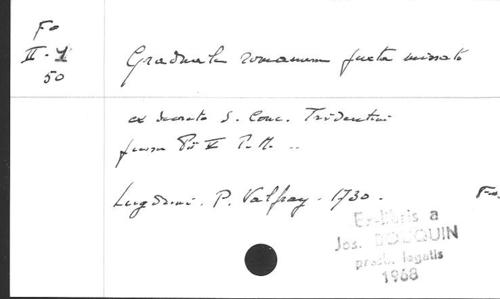 Fo
II-1
50
Graduale romanum juxta missale
ex decreto S. Conc. Tridentini
jussu Pii V P.M. ..
Lugduni. P. Valfray. 1730. Fo.
Ex-libris a
Jos. BOUQUIN
presb. legatis
1968